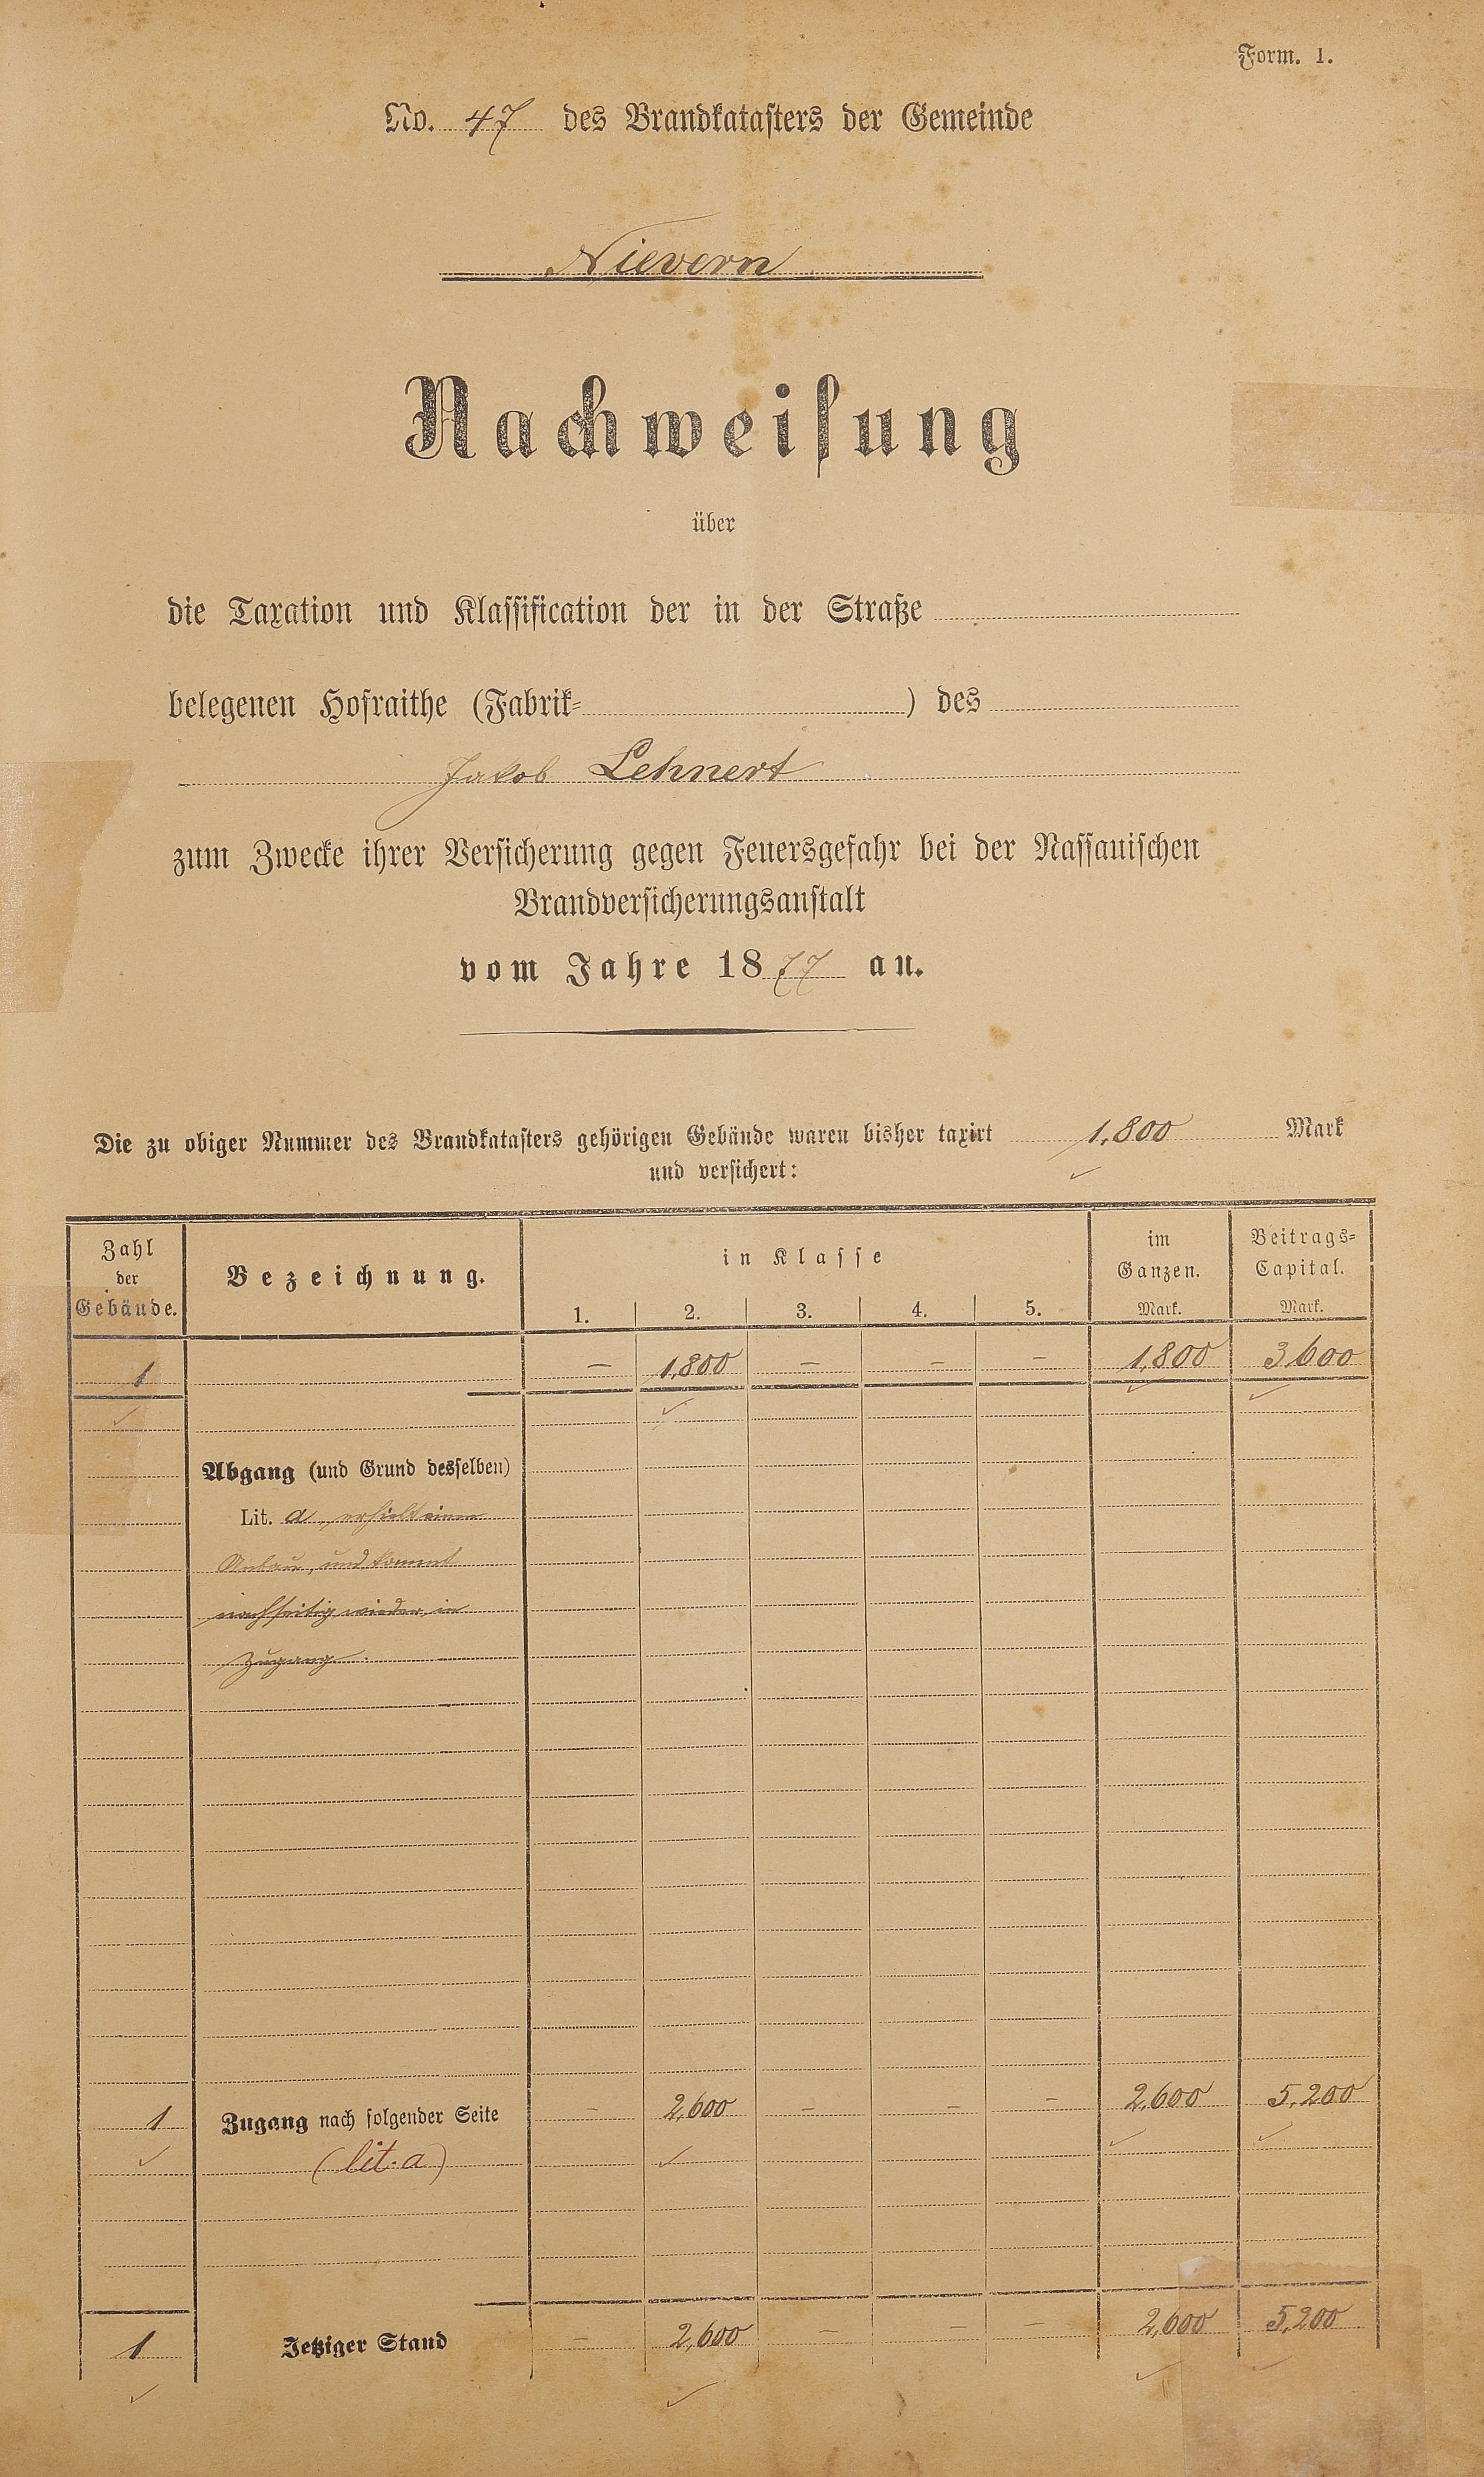 Form. 1.
No. 47 des Brandkatasters der Gemeinde
Nievern
Nachweisung
über
die Taxation und Klassification der in der Straße
belegenen Hofraithe (Fabrik= ) des
Jakob Lehnert
zum Zwecke ihrer Versicherung gegen Feuersgefahr bei der Nassauischen
Brandversicherungsanstalt
vom Jahre 1877 an.
Die zu obiger Nummer des Brandkatasters gehörigen Gebäude waren bisher taxirt 1,800 Mark
und versichert:
Zahl der Gebäude. Bezeichnung. in Klasse im Ganzen. Beitrags= Capital.
1. 2. 3. 4. 5. Mark. Mark.
1 – 1,800 – – – 1,800 3600
Abgang (und Grund desselben)
Lit. a, erhielt einen
Anbau, und kommt
nachseitig wieder, in
Zugang.
1 Zugang nach folgender Seite – 2,600 – – – 2,600 5,200
(lit. a)
1 Jetziger Stand – 2,600 – – – 2,600 5,200